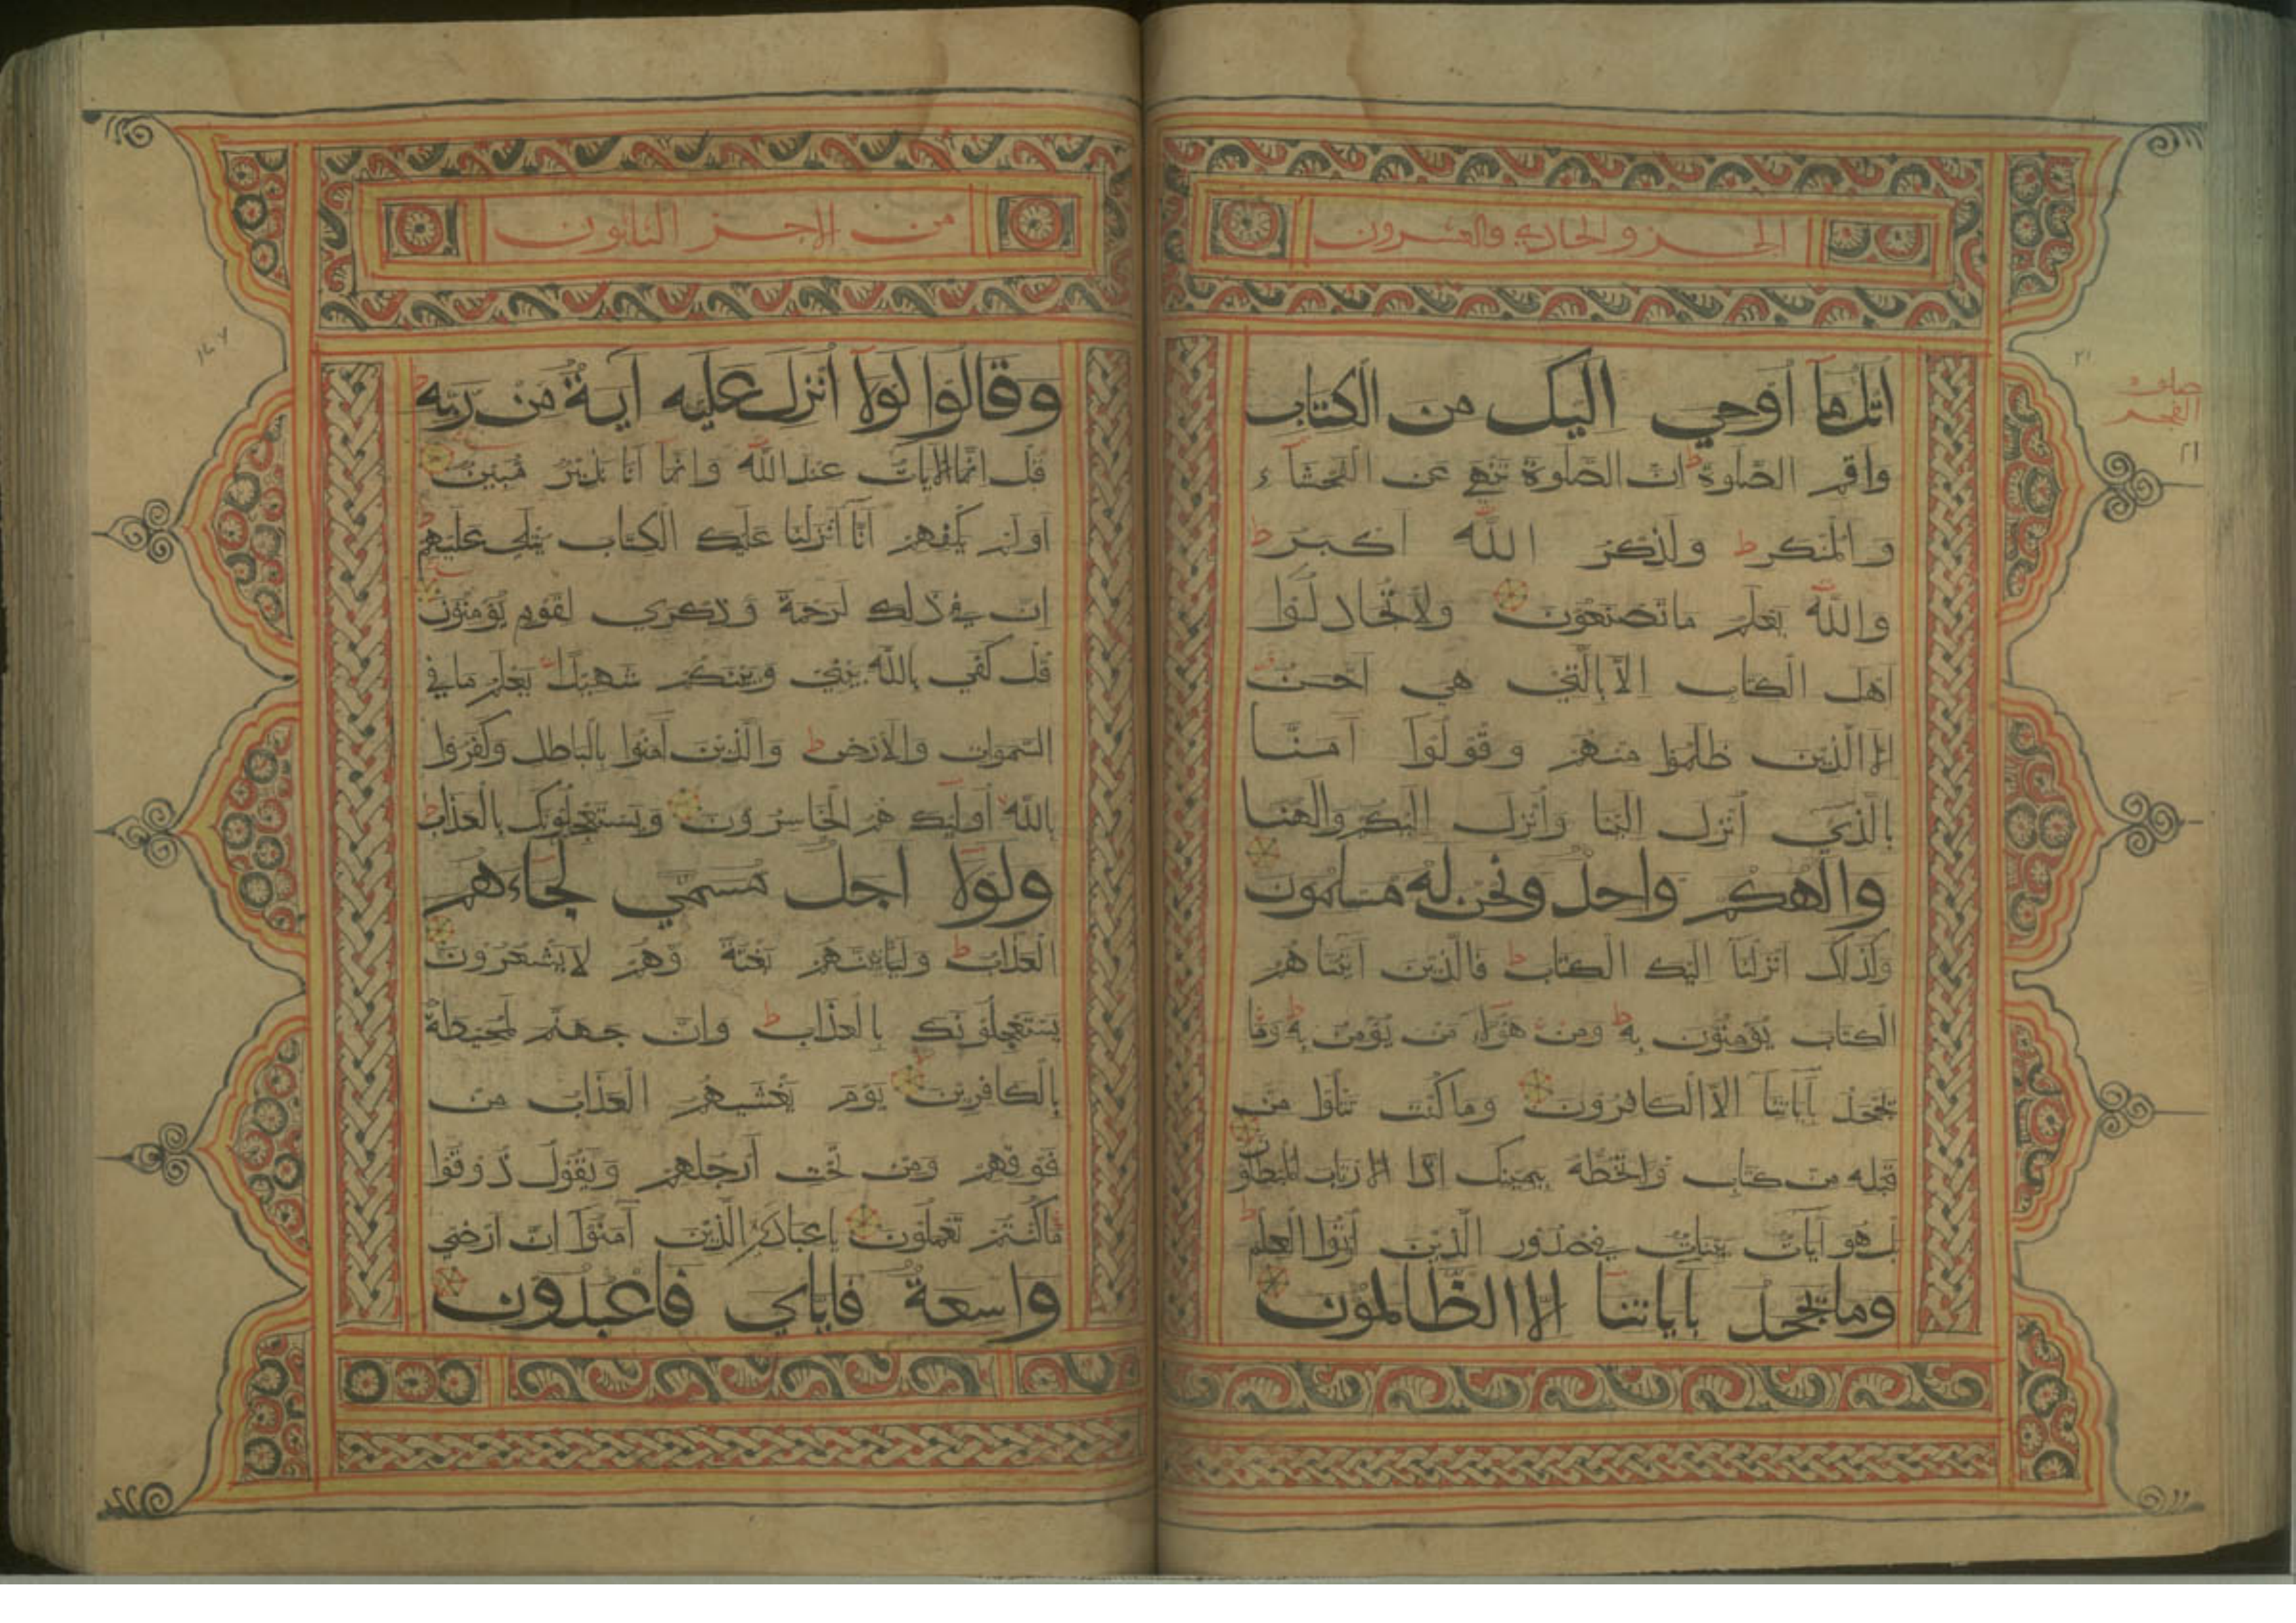 الجزو الحادي والعشرون
اتل ما أوحي اليك من الكتاب
واقم الصلوة ان الصلوة تنهى عن الفحشاء
والمنكر ط ولذكر الله اكبر ط
والله يعلم ما تصنعون ولا تجادلوا
اهل الكتاب الا بالتي هي احسن
الا الذين ظلموا منهم وقولوا آمنا
بالذي أنزل الينا وأنزل اليكم والهنا
والهكم واحد ونحن له مسلمون
وكذلك انزلنا اليك الكتاب ط فالذين آتيناهم
الكتاب يؤمنون به ط ومن هؤلاء من يؤمن به ط وما
يجحد بآياتنا الا الكافرون وما كنت تتلوا من
قبله من كتاب ولا تخطه بيمينك اذا لارتاب المبطلون
بل هو آيات بينات في صدور الذين اوتوا العلم ط
وما يجحد بآياتنا الا الظالمون
صلوة
الفجر
٢١
٢١
من الاجز الثانون
وقالوا لولا أنزل عليه آية من ربه
قل انما الآيات عند الله وانما انا نذير مبين
أولم يكفهم أنا أنزلنا عليك الكتاب يتلى عليهم
ان في ذلك لرحمة وذكرى لقوم يؤمنون
قل كفى بالله بيني وبينكم شهيدا يعلم ما في
السموات والارض ط والذين آمنوا بالباطل وكفروا
بالله أولئك هم الخاسرون ويستعجلونك بالعذاب ط
ولولا اجل مسمى لجاءهم
العذاب ط وليأتينهم بغتة وهم لا يشعرون
يستعجلونك بالعذاب ط وان جهنم لمحيطة
بالكافرين يوم يغشيهم العذاب من
فوقهم ومن تحت أرجلهم ويقول ذوقوا
ما كنتم تعملون يا عبادي الذين آمنوا ان ارضي
واسعة فاياي فاعبدون